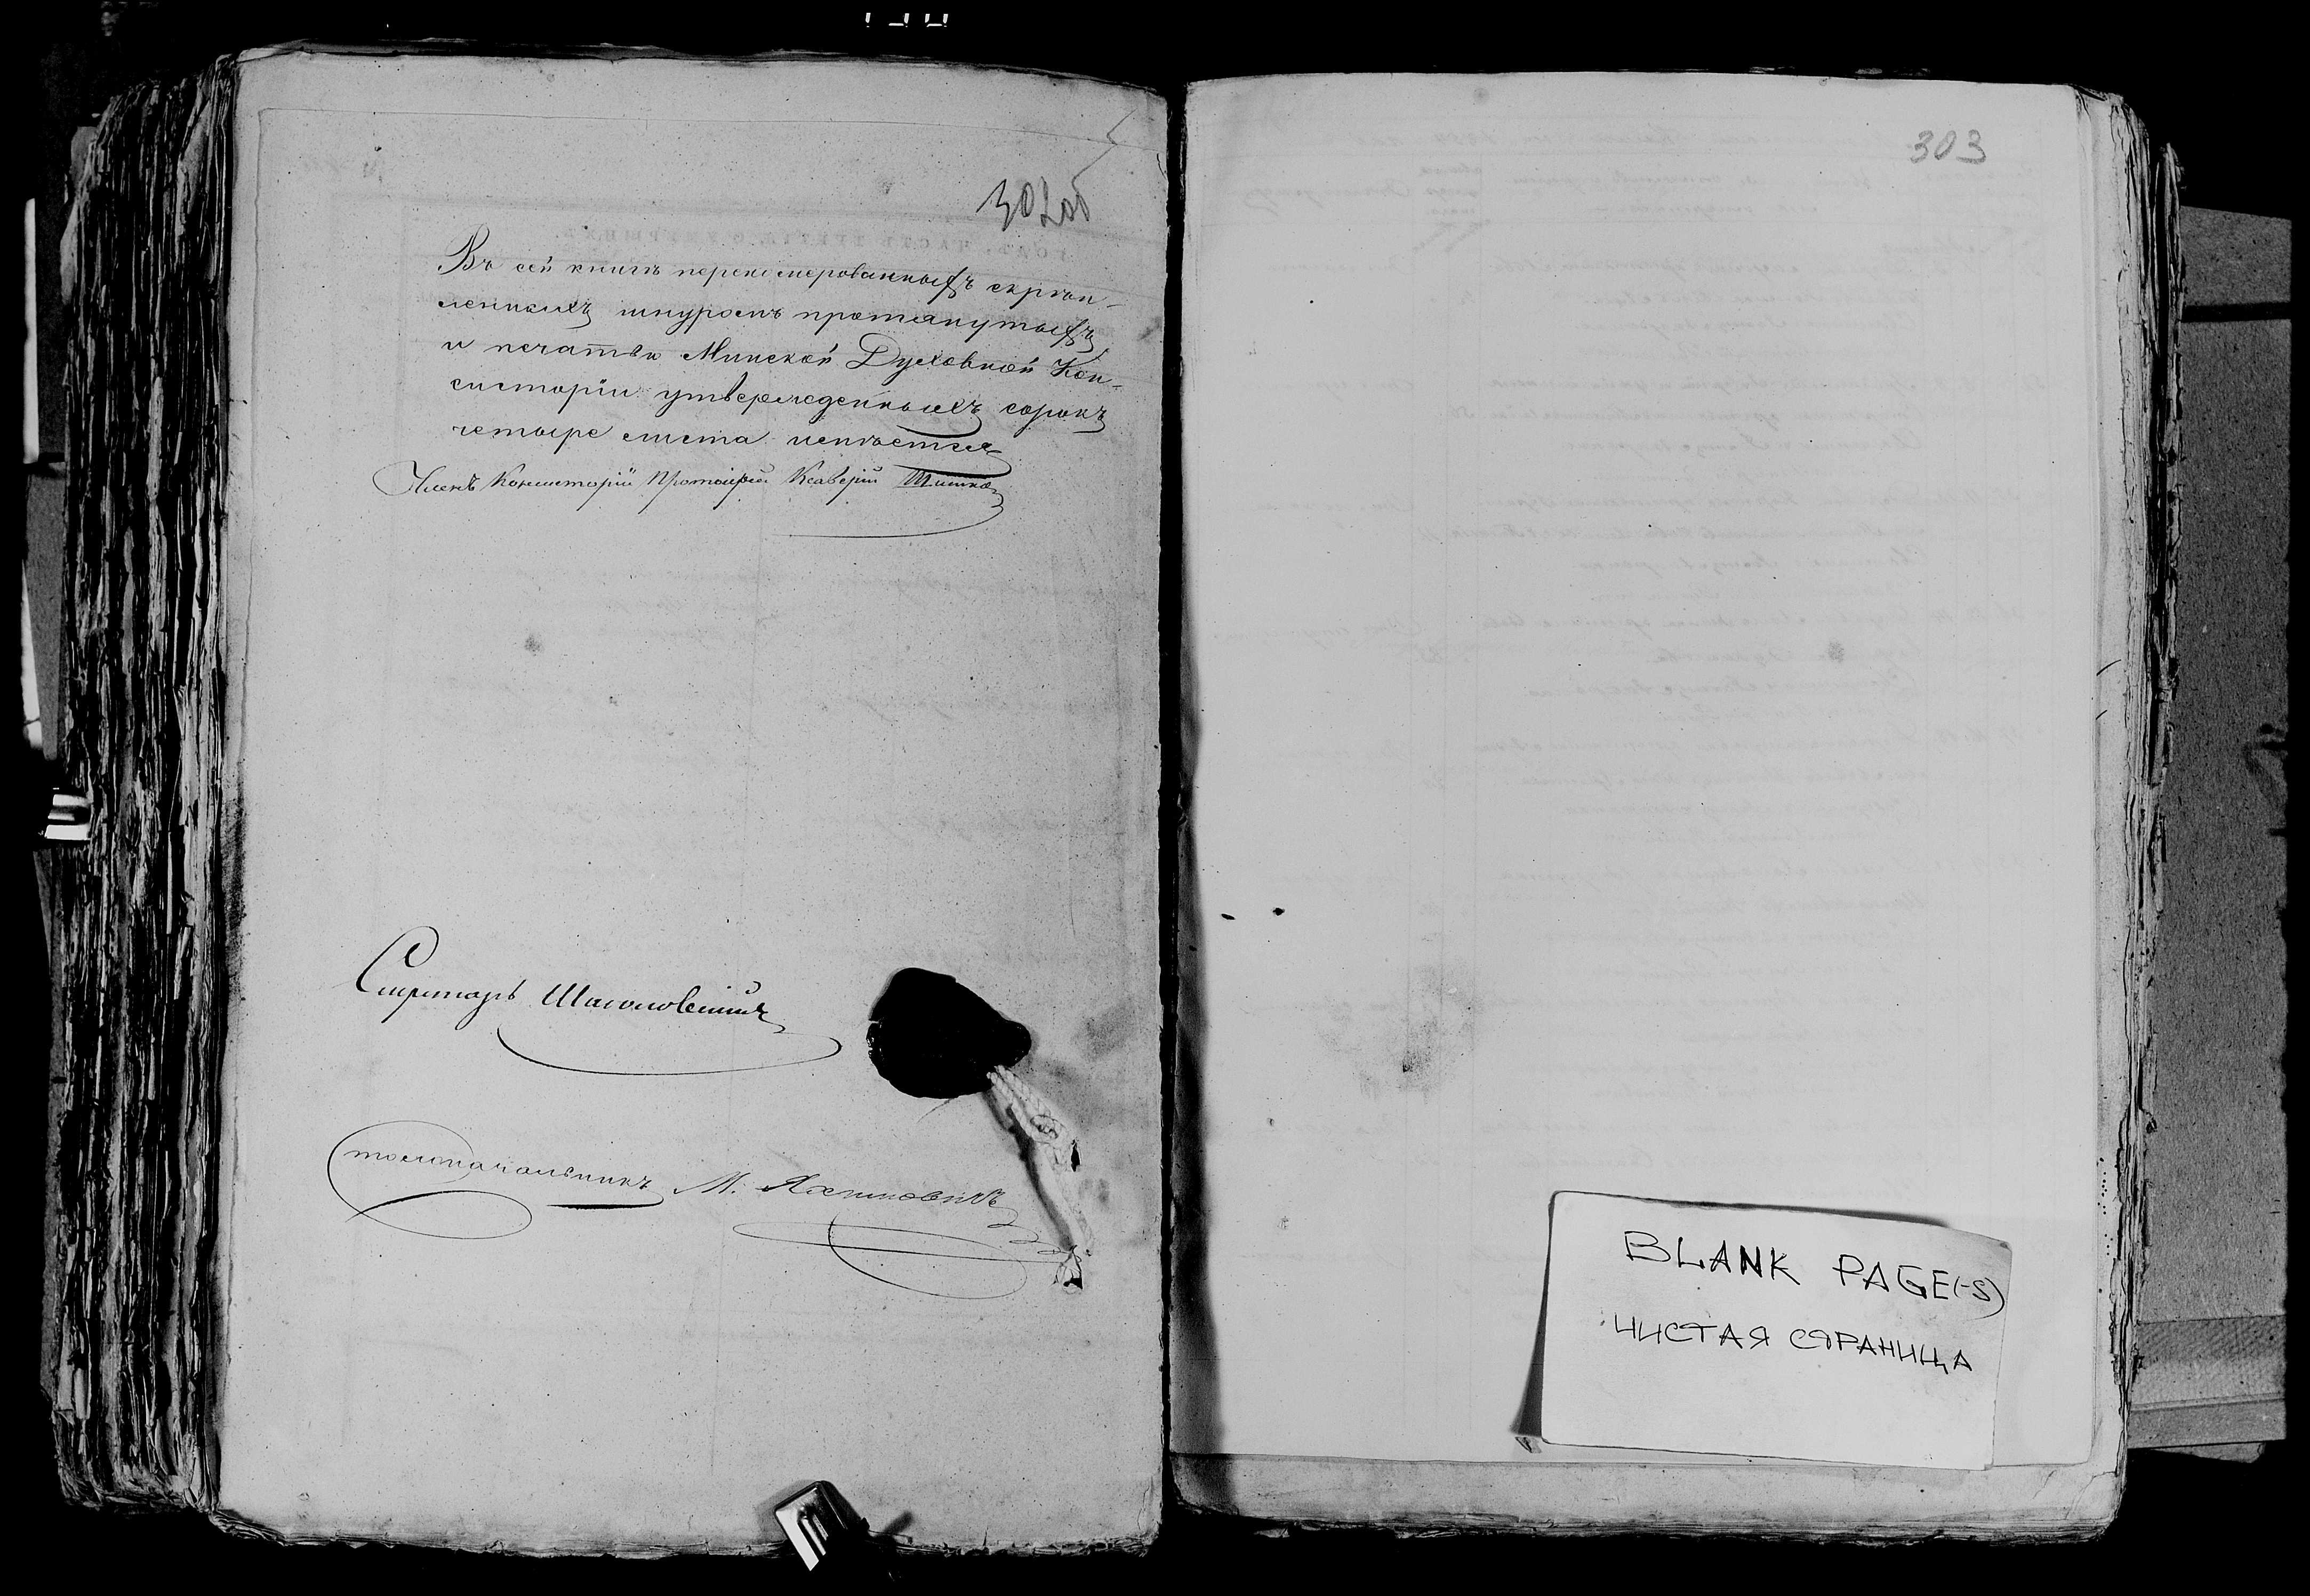 302об
Въ сей книгѣ перенумерованныхъ скрѣп-
ленныхъ шнуромъ протянутыхъ
и печатью Минской Духовной Кон-
систоріи утвержденныхъ сорокъ
четыре листа имѣется
Членъ Консисторіи Протоіерей Ксаверій
Секретарь
столоначальникъ М.
303
BLANK PAGE(-S)
ЧИСТАЯ СТРАНИЦА